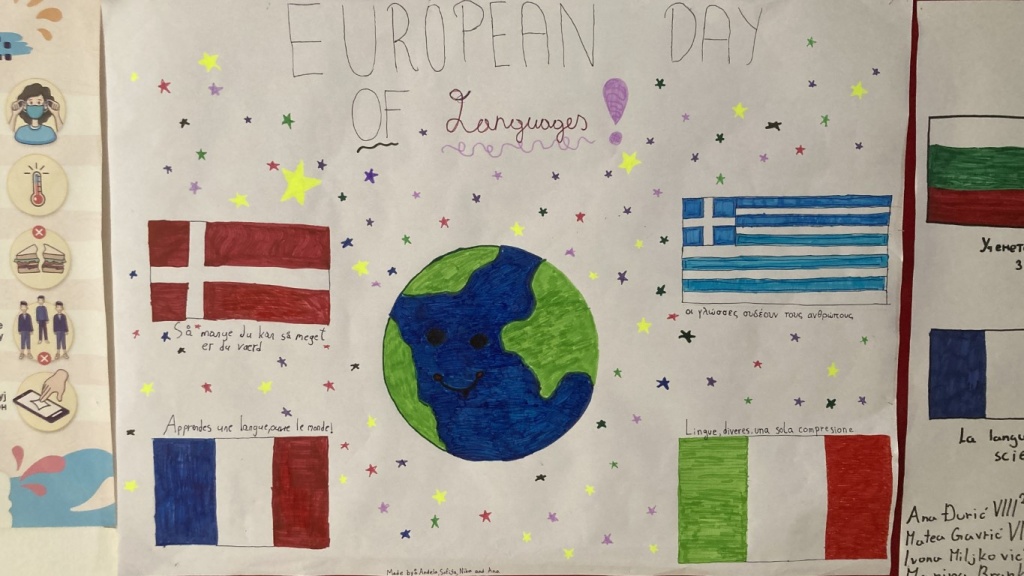 EUROPEAN DAY
OF Languages!
Så mange du kan så meget
er du værd
οι γλώσσες συδέουν τους ανθρώπους
Apprendes une langue, ouvre le monde!
Lingue, diveres, una sola compresione
Made by: Anđela, Sofija, Niko and Ana
Учените
З
La langu
scie
Ana Đurić VIII
Matea Gavrić VI
Ivona Miljkovic